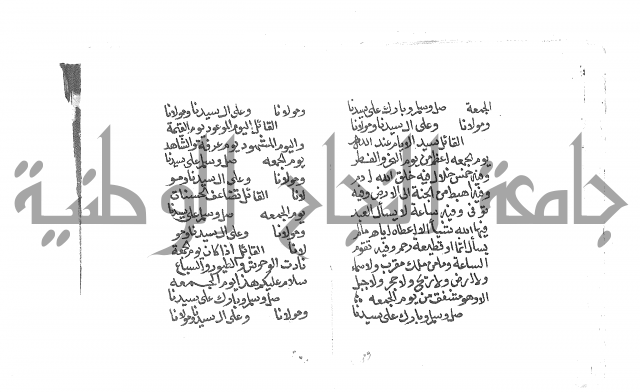 الجمعة صل وسلم وبارك على سيدنا
ومولانا وعلى ال سيدنا ومولانا
القائل سيد الايام عند الله
يوم الجمعة اعظم من يوم النحر والفطر
وفيه خمس خلال فيه خلق الله ادم
وفيه هبط من الجنة الى الارض وفيه
توفي وفيه ساعة لا يسأل العبد
فيها الله شيئا الا اعطاه اياه ما لم
يسأل اثما او قطيعة رحم وفيه تقوم
الساعة وما من ملك مقرب ولا سماء
ولا ارض ولا ريح ولا حجر ولا جبل
الا وهو مشفق من يوم الجمعة
صل وسلم وبارك على سيدنا
ومولانا وعلى ال سيدنا ومولانا
القائل اليوم الموعود يوم القيمة
واليوم المشهود يوم عرفة والشاهد
يوم الجمعة صل وسلم على سيدنا
ومولانا وعلى ال سيدنا ومو
لانا القائل تضاعف الحسنات
يوم الجمعة صل وسلم على سيدنا
ومولانا وعلى ال سيدنا ومو
لانا القائل اذا كان يوم الجمعة
نادت الوحوش والطيور والسباع
سلام عليكم هذا يوم الجمعة
صل وسلم وبارك على سيدنا
ومولانا وعلى ال سيدنا ومولانا
جامعة النجاح الوطنية